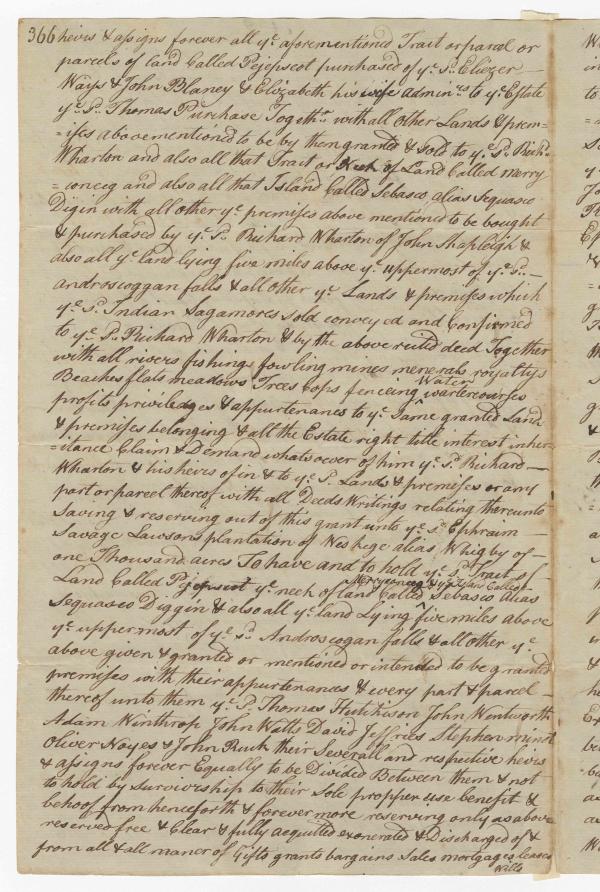 366 heirs & assigns forever all ye. aforementioned Tract or parcel or
parcels of land Called Pejepscot purchased of ye. Sd. Eliezer
Ways & John Blaney & Elizabeth his wife Admin.rs to ye. Estate
ye. Sd. Thomas Purchase Togethr. with all other Lands & prem=
=ises abovementioned to be by them granted & sold to ye. Sd. Richd.
Wharton and also all that Trait or Neck of Land Called merry
=coneeg and also all that Island Called Sebasco, alias Sequasco
Digin with all other ye. premises above mentioned to be bought
& purchased by ye. Sd. Richard Wharton of John Shapleigh &
also all ye. land lying five miles above ye. uppermost of ye. Sd. —
androscoggan falls & all other ye. Lands & premises which
ye. Sd. Indian Sagamores sold conveyed and Confirmed
to ye. Sd. Richard Wharton & by the above recited deed Together
with all rivers fishings fowling mines menerals royaltys
Beaches flats meadows Trees Cops fenceing Water wartercourses
profits priviledges & appurtenances to ye. Same granted Land
& premises belonging & all the Estate right title interest inher=
=itance Claim & Demand whatsoever of him ye. Sd. Richard —
Wharton & his heires of in & to ye. Sd. Lands & premises or any
part or parcel thereof with all Deeds Writings relating thereunto
Saving & reserving out of this grant unto ye. Sd. Ephraim —
Savage Lawsons plantation of Neskege alias, Whigby of —
one Thousand acres To have and to hold ye. Sd. Trait of
Land Called Pejepscut ye. neck of land Called Merryconeeg & ye. Island Called Sebasco alias
Sequasco Diggin & also all ye. land Lying five miles above
ye. uppermost of ye. Sd. Androscogan falls & all other ye.
above given & granted or mentioned or intended to be granted
premises with their appurtenances & every part & parcel —
thereof unto them ye. Sd. Thomas Hutchison John Wentworth
Adam Winthrop John Watts David Jeffries Stephen minot
Oliver Noyes & John Ruck their Severall and respitive heirs
& assigns forever Equally to be Divided Between them & not
to hold by Surviorship to their Sole propper use benefit &
behoof from henceforth & forevermore reserving only as above
reserved free & Clear & fully acquitted exonerated & Discharged of &
from all & all maner of Gifts grants bargains Sales mortgages leases
Wills